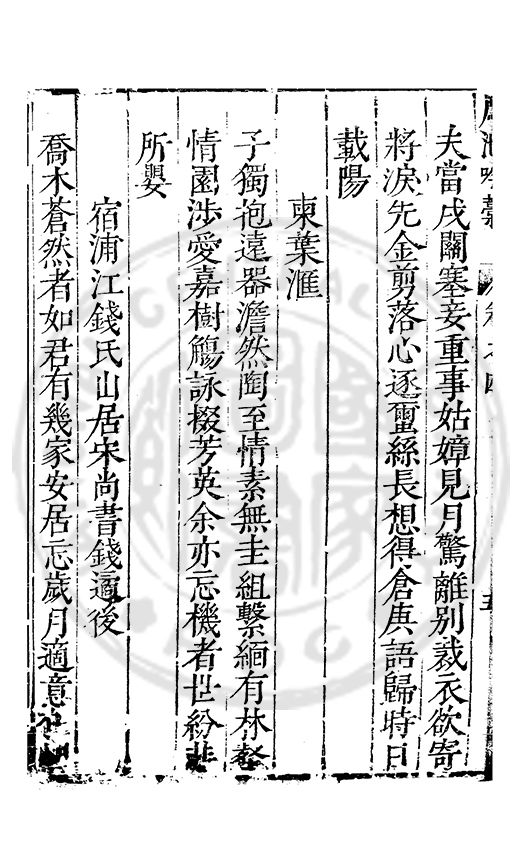 夫當戍關塞妾重事姑嫜見月驚離別裁衣欲寄
將淚先金剪落心逐蠒絲長想得倉庚語歸時日
載陽
柬葉滙
子獨抱遠器澹然陶至情素無圭組繫緬有林壑
情園涉愛嘉樹觴詠掇芳英余亦忘機者世紛非
所嬰
宿浦江錢氏山居宋尚書錢遹後
喬木蒼然者如君有幾家安居忘歲月適意